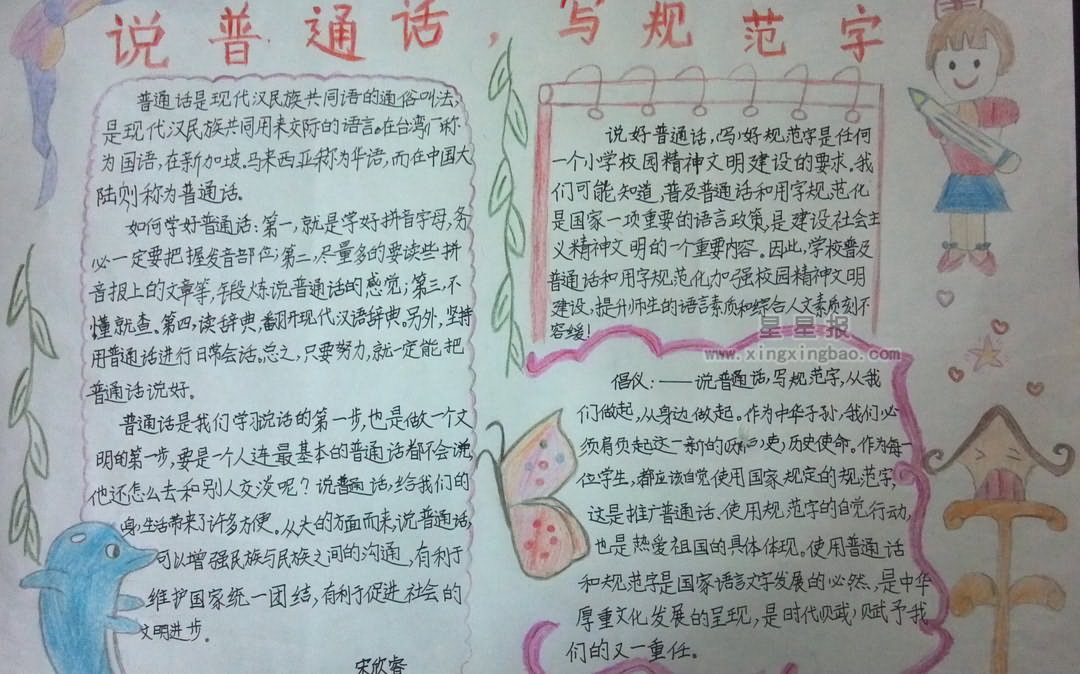 说普通话，写规范字
普通话是现代汉民族共同语的通俗叫法，
是现代汉民族共同用来交际的语言。在台湾称
为国语，在新加坡.马来西亚称为华语，而在中国大
陆则称为普通话。
如何学好普通话：第一，就是学好拼音字母，务
必一定要把握发音部位；第二，尽量多的要读些拼
音报上的文章等，锻炼说普通话的感觉；第三，不
懂就查。第四，读辞典，翻开现代汉语辞典。另外，坚持
用普通话进行日常会话。总之，只要努力，就一定能把
普通话说好。
普通话是我们学习说话的第一步，也是做一个文
明的第一步，要是一个人连最基本的普通话都不会说，
他还怎么去和别人交谈呢？说普通话，给我们的
生活带来了许多方便。从大的方面而来，说普通话，
可以增强民族与民族之间的沟通，有利于
维护国家统一团结，有利于促进社会的
文明进步。
宋欣睿
说好普通话，写好规范字是任何
一个小学校园精神文明建设的要求。我
们可能知道，普及普通话和用字规范化
是国家一项重要的语言政策，是建设社会主
义精神文明的一个重要内容。因此，学校普及
普通话和用字规范化，加强校园精神文明
建设，提升师生的语言素质和综合人文素质刻不
容缓！
星星报
www.xingxingbao.com
倡仪：——说普通话，写规范字，从我
们做起，从身边做起。作为中华子孙，我们必
须肩负起这一新的历史使命。作为每一
位学生，都应该自觉使用国家规定的规范字，
这是推广普通话、使用规范字的自觉行动，
也是热爱祖国的具体体现。使用普通话
和规范字是国家语言文字发展的必然，是中华
厚重文化发展的呈现，是时代赋予我
们的又一重任。